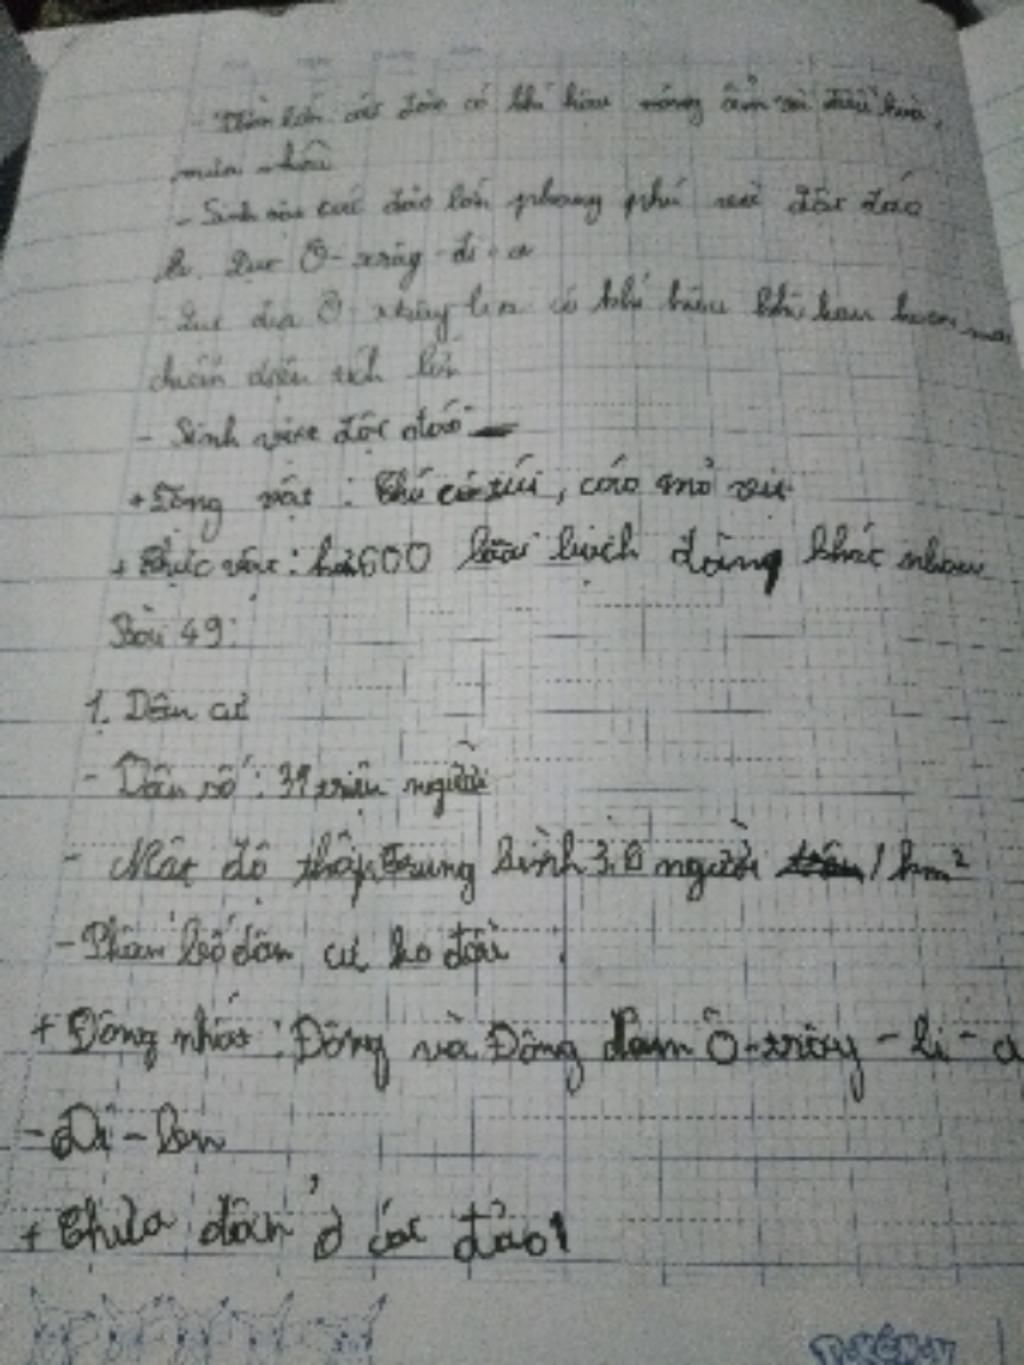 - Phần lớn các đảo có khí hậu nóng ẩm và điều hòa,
mưa nhiều
- Sinh vật các đảo lớn phong phú và độc đáo
b. Lục Ô-xrây-di-a
- Lục địa Ô-xtrây-lia có khí hậu khô hạn hoang mạc
chiếm diện tích lớn
- Sinh vật độc đáo
+ Động vật : Thú có túi, cáo mỏ vịt
+ Thực vật : hơn 600 loài bạch đàng khác nhau
Bài 49:
1. Dân cư
- Dân số : 31 triệu người
- Mật độ thấp trung bình 3,6 người /km²
- Phân bố dân cư ko đều
+ Đông nhất : Đông và Đông nam Ô-xtrây-li-a
- Di-len
+ Thưa dân ở các đảo
POKÉMON